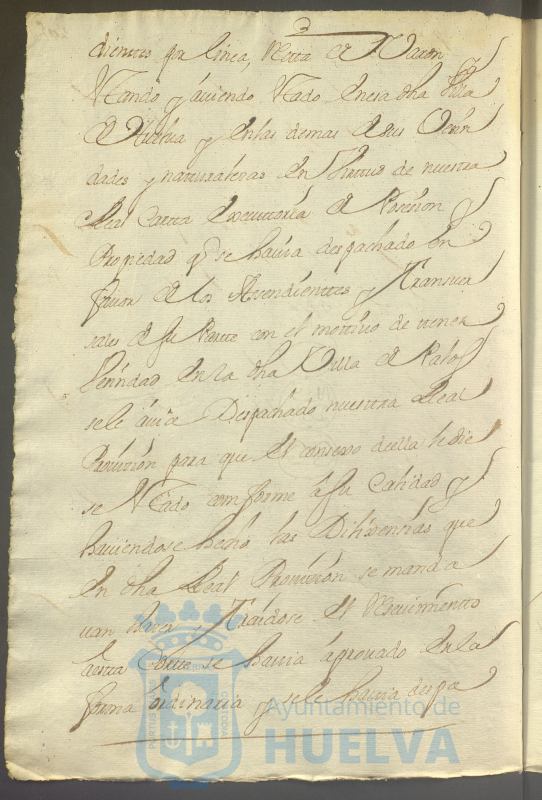 dientes por linea, Recta de Varon
stando y auiendo stado en esa dha Villa
de Huelva y en las demas de sus Vecin
dades y naturalezas en Virtud de nuestra
Real Carta executoria de Posesion y
Propiedad q se hauia despachado en
fauor de los Asendientes y Transuer
sales de su Parte con el mottiuo de tener
Vecindad en la dha Villa de Palos
sele auia Despachado nuestra Real
Prouision para que el consexo de ella le die
se stado comforme a su Calidad y
hauiendose hecho las Dilixencias que
en dha Real Prouision se manda
uan hacer y Traidose el Reciuimiento
a esta Corte se hauia aprouado en la
forma ordinaria y sele hauia despa
Ayuntamiento de
HUELVA